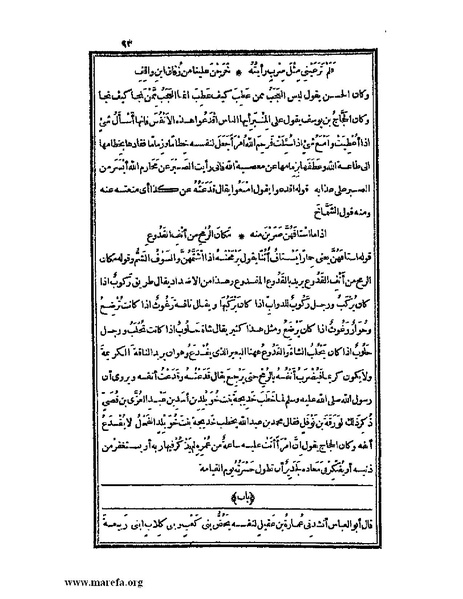 ٩٣
فلم ترعيني مثل سرب رأيته * خرجن علينا من زقاق ابن واقف
وكان الحسن يقول ليس العجب ممن عطب كيف عطب انما العجب ممن نجا كيف نجا
وكان الحجاج بن يوسف يقول على المنبر أيها الناس اقدعوا هذه الانفس فانها أسأل شئ
اذا أعطيت وأمنع شئ اذا سئلت فرحم الله امرأ جعل لنفسه خطاما وزماما فقادها بخطامها
الى طاعة الله وعطفها بزمامها عن معصية الله فانى رأيت الصبر عن محارم الله أيسر من
الصبر على عذابه قوله اقدعوا يقول امنعوا يقال قدعته عن كذا أى منعته عنه
ومنه قول الشماخ
اذا ما استافهن ضربن منه * مكان الرمح من أنف القدوع
قوله استافهن يعنى حمارا يستاف أتنا يقول يرمحنه اذا اشتمهن والسوف الشم وقوله مكان
الرمح من أنف القدوع يريد بالقدوع المقدوع وهذا من الاضداد يقال طريق ركوب اذا
كان يركب ورجل ركوب للدواب اذا كان يركبها ويقال ناقة رغوث اذا كانت ترضع
وحوار رغوث اذا كان يرضع ومثل هذا كثير يقال شاة حلوب اذا كانت تحلب ورجل
حلوب اذا كان يحلب الشاة والقدوع ههنا البعير الذى يقدع وهو ان يريد الناقة الكريمة
ولا يكون كريما فيضرب أنفه بالرمح حتى يرجع يقال قدعته وقدعت أنفه ويروى أن
رسول الله صلى الله عليه وسلم لما خطب خديجة بنت خويلد بن أسد بن عبد العزى بن قصى
ذكر ذلك لورقة بن نوفل فقال محمد بن عبد الله يخطب خديجة بنت خويلد الفحل لا يقدع
أنفه وكان الحجاج يقول ان امرأ أتت عليه ساعة من عمره لم يذكر فيها ربه أو يستغفر من
ذنبه أو يفكر فى معاده لجدير أن تطول حسرته يوم القيامة
﴿باب﴾
قال أبو العباس أنشدنى عمارة بن عقيل لنفسه يحض بنى كعب وبنى كلاب ابنى ربيعة
www.marefa.org